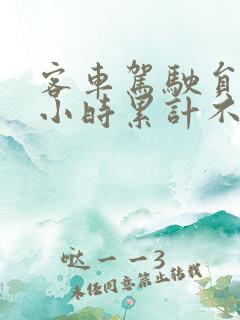 客車駕駛員
小時累計不
哒一一3
未经同意禁止转载